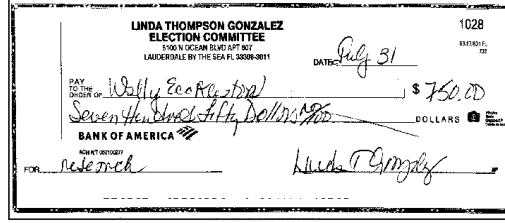 LINDA THOMPSON GONZALEZ 1028
ELECTION COMMITTEE
5100 N OCEAN BLVD APT 607
LAUDERDALE BY THE SEA FL 33308-3011
DATE July 31
PAY
TO THE
ORDER OF Wally $ 750.00
Seven Hundred Fifty Dollars DOLLARS
BANK OF AMERICA
FOR research Linda T Gonzalez